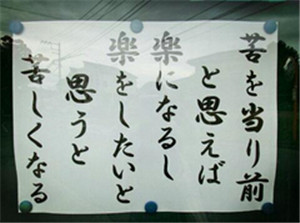 苦を当り前
と思えば
楽になるし
楽をしたいと
思うと
苦しくなる